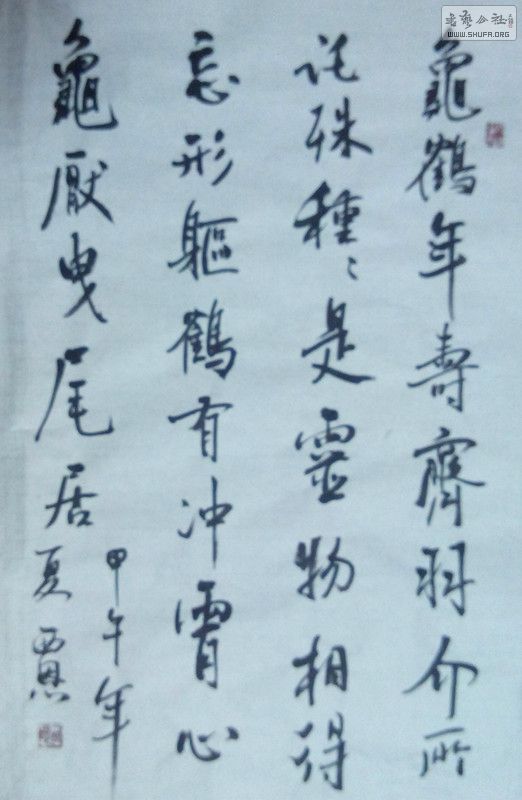 龜鶴年壽齊羽介所
託殊種〻是靈物相得
忘形軀鶴有冲霄心
龜厭曳尾居
甲午年
夏
WWW.SHUFA.ORG